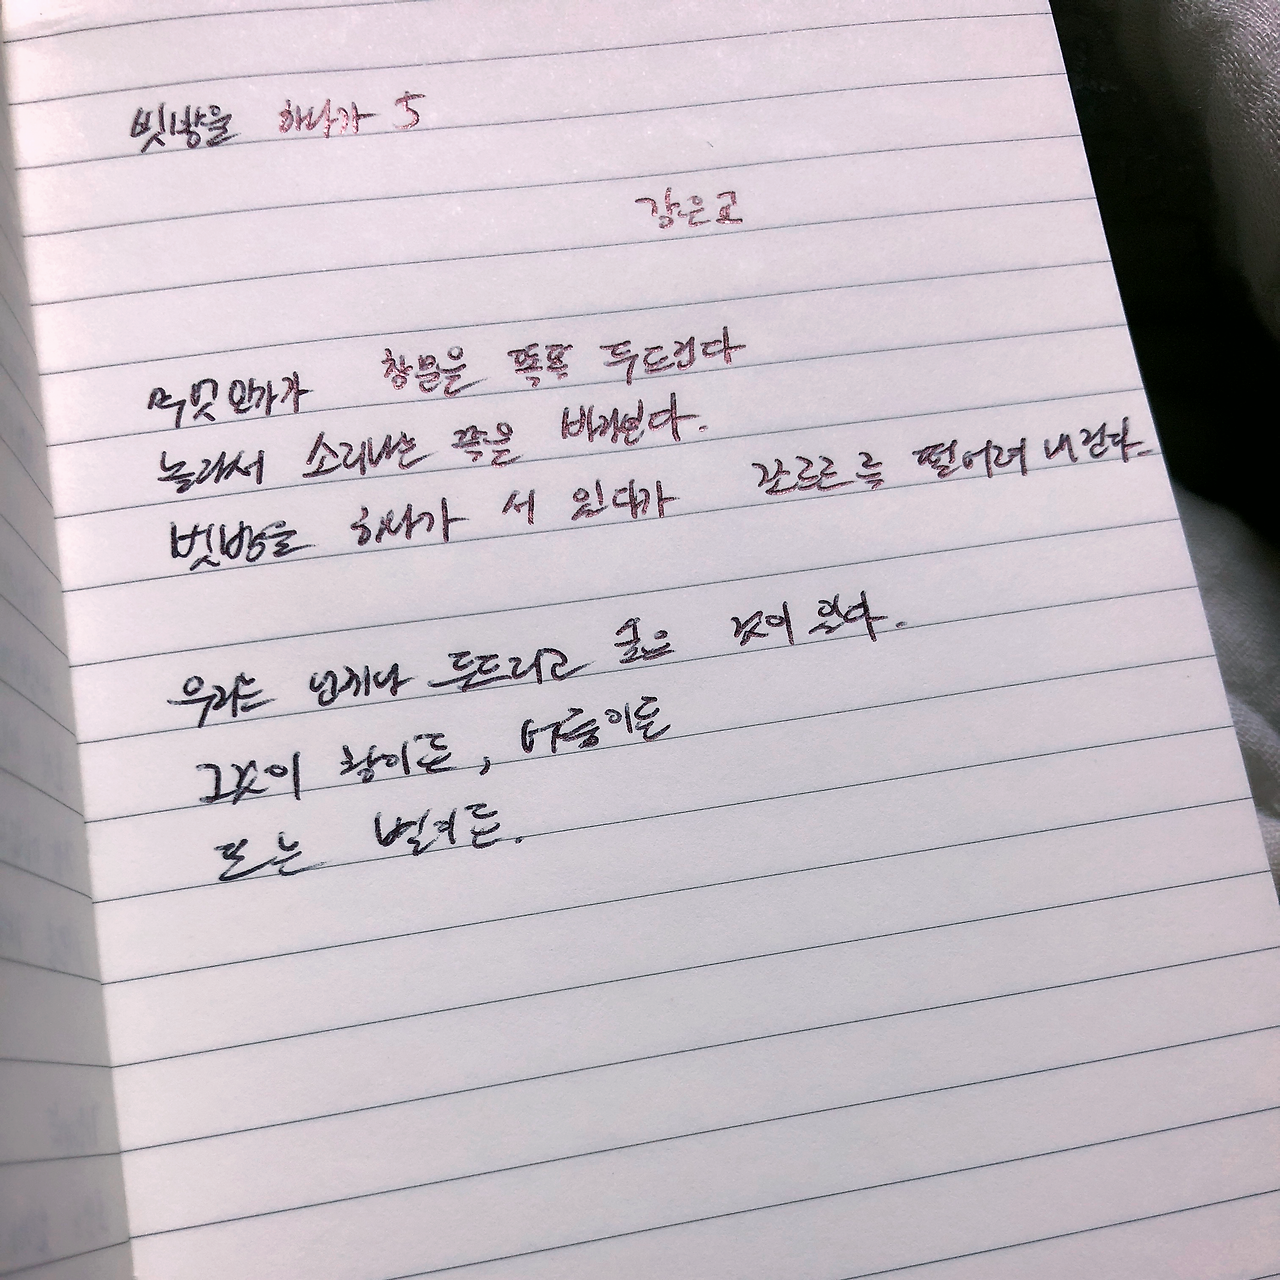 빗방울 하나가 5
강은교
무엇인가가 창문을 똑똑 두드린다
놀라서 소리나는 쪽을 바라본다.
빗방울 하나가 서 있다가 쪼르르륵 떨어져 내린다.
우리는 언제나 두드리고 싶은 것이 있다.
그것이 창이든, 어둠이든
또는 별이든.